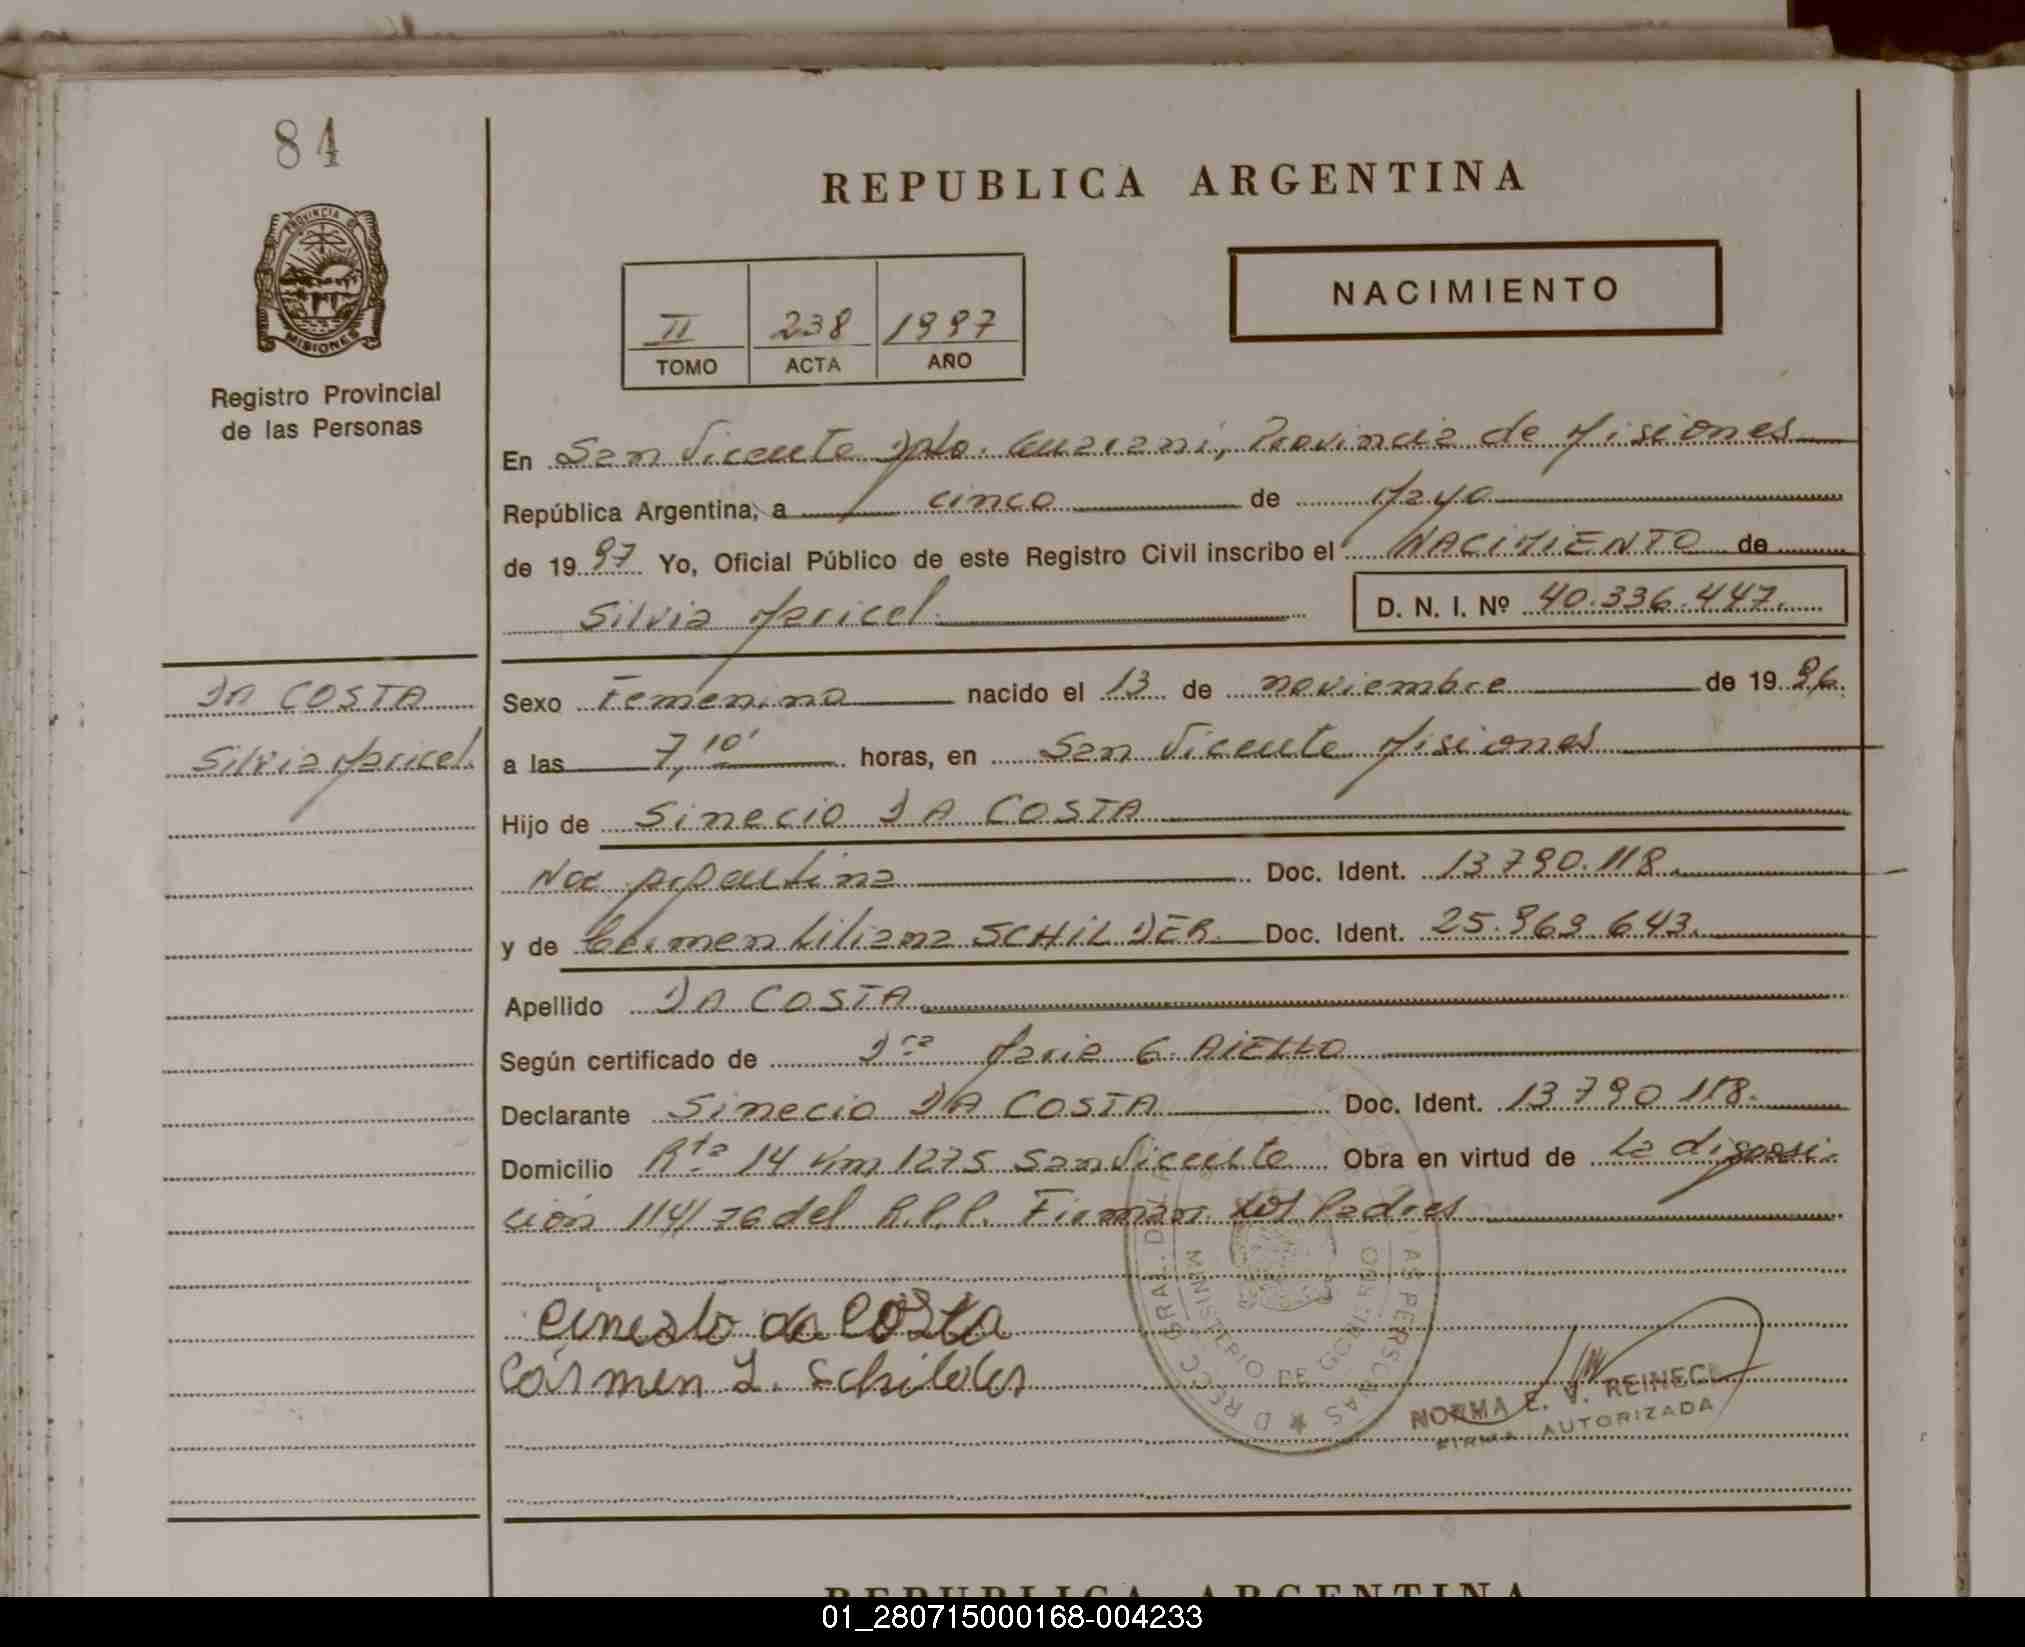 84
REPUBLICA ARGENTINA
PROVINCIA DE
MISIONES
Registro Provincial
de las Personas
NACIMIENTO
II 238 1997
TOMO ACTA AÑO
En San Vicente Dpto. Guarani, Provincia de Misiones
República Argentina, a cinco de Mayo
de 1997 Yo, Oficial Público de este Registro Civil inscribo el NACIMIENTO de
Silvia Maricel D. N. I. Nº 40.336.447.
DA COSTA
Silvia Maricel.
Sexo Femenino nacido el 13 de noviembre de 1996.
a las 7,10' horas, en San Vicente Misiones
Hijo de Sinecio DA COSTA
Nac Argentina Doc. Ident. 13.790.118.
y de Carmen Liliana SCHILDER. Doc. Ident. 25.969.643.
Apellido DA COSTA
Según certificado de Dra Maria G. AIELLO
Declarante Sinecio DA COSTA Doc. Ident. 13790118.
Domicilio Rta 14 Km 1275 San Vicente Obra en virtud de la disposi-
ción 114/76 del R.P.P. Firman los Padres
da Costa
Carmen L. Schilder
DIRECC GRAL. DE AS PERSONAS
MINISTERIO DE GOBIERNO
NORMA E. V. REINECK
FIRMA AUTORIZADA
REPUBLICA ARGENTINA
01_280715000168-004233